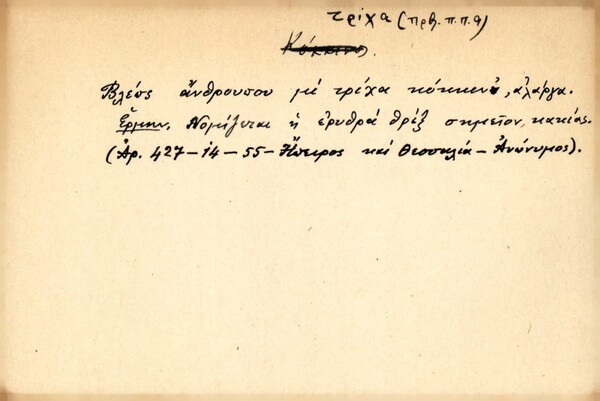 τρίχα (πρβ. π.π.α)
Κόκκινος.
Βλέπς ἄνθρουπου μέ τρίχα κόκκιν', ἀλάργα.
Ἑρμην. Νομίζεται ἡ ἐρυθρά θρίξ σημεῖον κακίας.
(Ἀρ. 427-14-55-Ἤπειρος καί Θεσσαλία-Ἀνώνυμος).